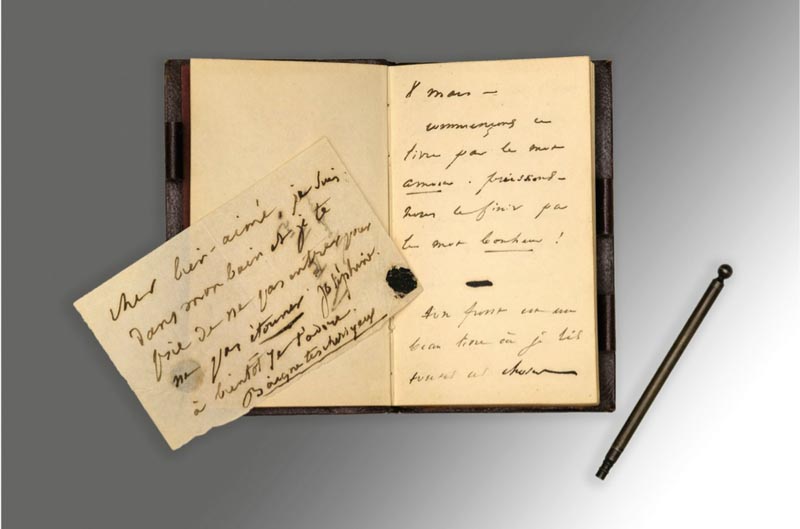 cher bien-aimé, je suis
dans mon bain et je te
prie de ne pas entrer pour
ne pas étonner Joséphine.
à bientôt je t'adore.
tes chers yeux
8 mars —
commençons ce
livre par le mot
amour. puissions-
nous le finir par
le mot bonheur !
—
Ton front est un
beau livre où je lis
toutes ces choses